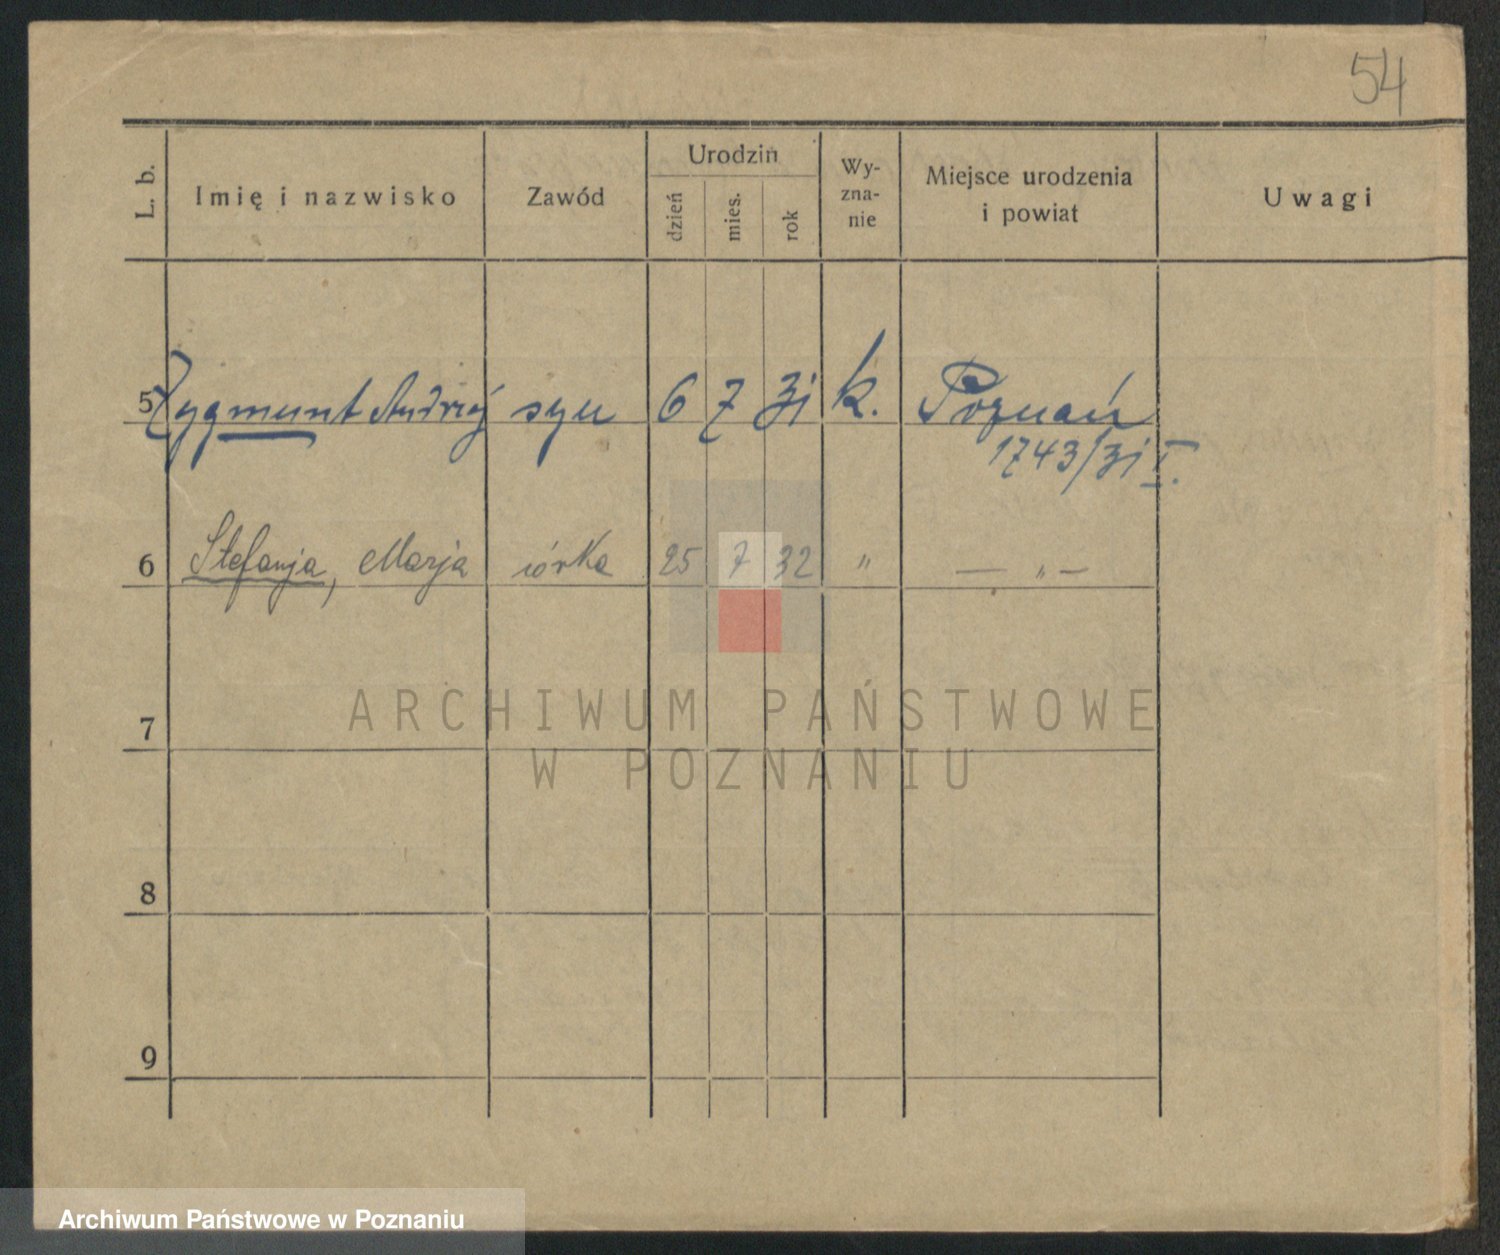 54
L. b. Imię i nazwisko Zawód Urodzin dzień mies. rok Wy-zna-nie Miejsce urodzenia i powiat Uwagi
5 Zygmunt Andrzej syn 6 7 31 k. Poznań
1743/31 I.
6 Stefanja, Marja córka 25 7 32 " — " —
7
ARCHIWUM PAŃSTWOWE
W POZNANIU
8
9
Archiwum Państwowe w Poznaniu